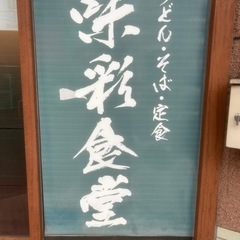 うどん・そば・定食
味彩食堂